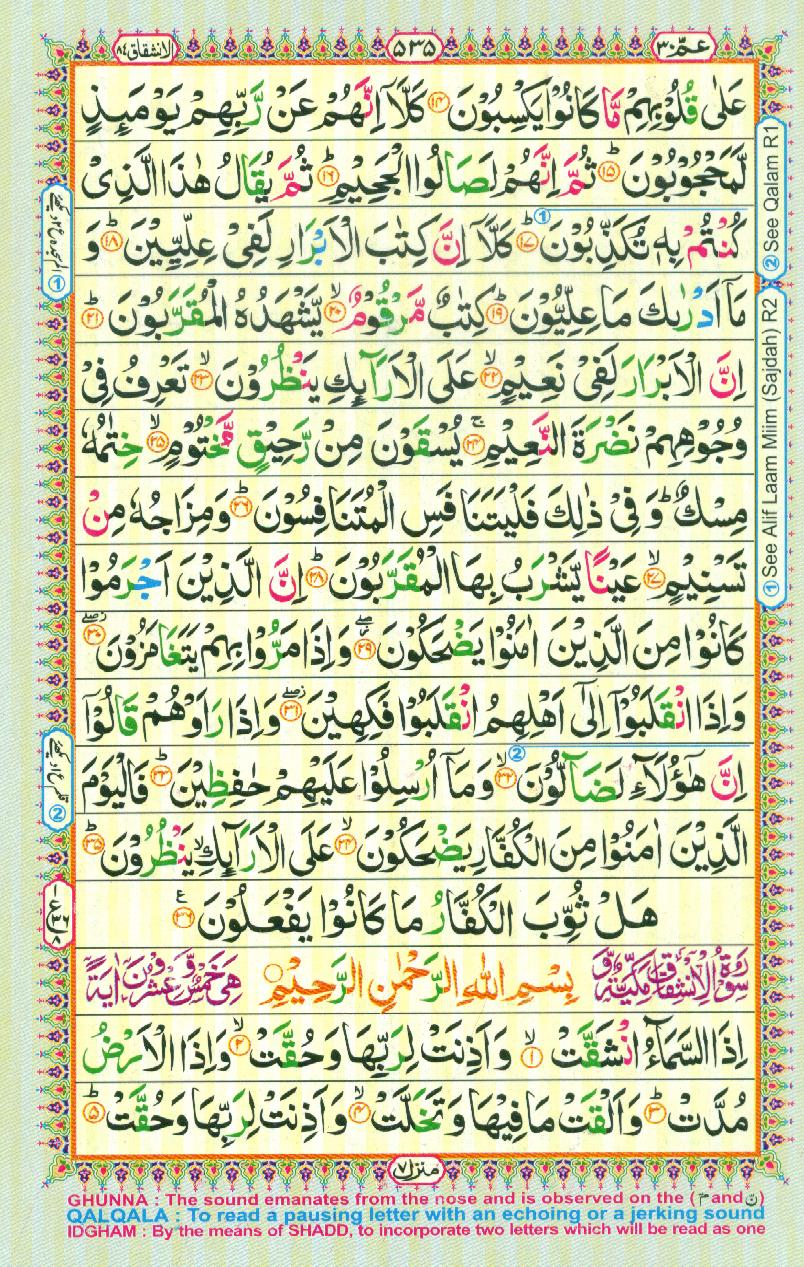 الانشقاق ٨٤
٥٣٥
عمّ ٣٠
عَلٰى قُلُوْبِهِمْ مَّا كَانُوْا يَكْسِبُوْنَ ۝١٤ كَلَّاۤ اِنَّهُمْ عَنْ رَّبِّهِمْ يَوْمَىِٕذٍ
لَّمَحْجُوْبُوْنَ ؕ۝١٥ ثُمَّ اِنَّهُمْ لَصَالُوا الْجَحِيْمِ ؕ۝١٦ ثُمَّ يُقَالُ هٰذَا الَّذِىْ
كُنْتُمْ بِهٖ تُكَذِّبُوْنَ ؕ۝١٧ ① كَلَّاۤ اِنَّ كِتٰبَ الْاَبْرَارِ لَفِىْ عِلِّيِّيْنَ ؕ۝١٨ وَ
مَاۤ اَدْرٰىكَ مَا عِلِّيُّوْنَ ؕ۝١٩ كِتٰبٌ مَّرْقُوْمٌ ۙ۝٢٠ يَّشْهَدُهُ الْمُقَرَّبُوْنَ ؕ۝٢١
اِنَّ الْاَبْرَارَ لَفِىْ نَعِيْمٍ ۙ۝٢٢ عَلَى الْاَرَآىِٕكِ يَنْظُرُوْنَ ۙ۝٢٣ تَعْرِفُ فِىْ
وُجُوْهِهِمْ نَضْرَةَ النَّعِيْمِ ۚ۝٢٤ يُسْقَوْنَ مِنْ رَّحِيْقٍ مَّخْتُوْمٍ ۙ۝٢٥ خِتٰمُهٗ
مِسْكٌ ؕ وَفِىْ ذٰلِكَ فَلْيَتَنَافَسِ الْمُتَنَافِسُوْنَ ؕ۝٢٦ وَمِزَاجُهٗ مِنْ
تَسْنِيْمٍ ۙ۝٢٧ عَيْنًا يَّشْرَبُ بِهَا الْمُقَرَّبُوْنَ ؕ۝٢٨ اِنَّ الَّذِيْنَ اَجْرَمُوْا
كَانُوْا مِنَ الَّذِيْنَ اٰمَنُوْا يَضْحَكُوْنَ ۝٢٩ وَاِذَا مَرُّوْا بِهِمْ يَتَغَامَزُوْنَ ۝٣٠
وَاِذَا انْقَلَبُوْۤا اِلٰٓى اَهْلِهِمُ انْقَلَبُوْا فَكِهِيْنَ ۝٣١ وَاِذَا رَاَوْهُمْ قَالُوْۤا
اِنَّ هٰۤؤُلَآءِ لَضَآلُّوْنَ ۙ۝٣٢ ② وَمَاۤ اُرْسِلُوْا عَلَيْهِمْ حٰفِظِيْنَ ؕ۝٣٣ فَالْيَوْمَ
الَّذِيْنَ اٰمَنُوْا مِنَ الْكُفَّارِ يَضْحَكُوْنَ ۙ۝٣٤ عَلَى الْاَرَآىِٕكِ ۙ يَنْظُرُوْنَ ؕ۝٣٥
هَلْ ثُوِّبَ الْكُفَّارُ مَا كَانُوْا يَفْعَلُوْنَ ۝٣٦ ع
سُوْرَةُ الْاِنْشِقَاقِ مَكِّيَّةٌ وَّ
بِسْمِ اللّٰهِ الرَّحْمٰنِ الرَّحِيْمِ
هِىَ خَمْسٌ وَّعِشْرُوْنَ اٰيَةً
اِذَا السَّمَآءُ انْشَقَّتْ ۙ۝١ وَاَذِنَتْ لِرَبِّهَا وَحُقَّتْ ۙ۝٢ وَاِذَا الْاَرْضُ
مُدَّتْ ؕ۝٣ وَاَلْقَتْ مَا فِيْهَا وَتَخَلَّتْ ۙ۝٤ وَاَذِنَتْ لِرَبِّهَا وَحُقَّتْ ؕ۝٥
منزل ٧
② See Qalam R1
① See Alif Laam Miim (Sajdah) R2
①
②
GHUNNA : The sound emanates from the nose and is observed on the (م and ن)
QALQALA : To read a pausing letter with an echoing or a jerking sound
IDGHAM : By the means of SHADD, to incorporate two letters which will be read as one